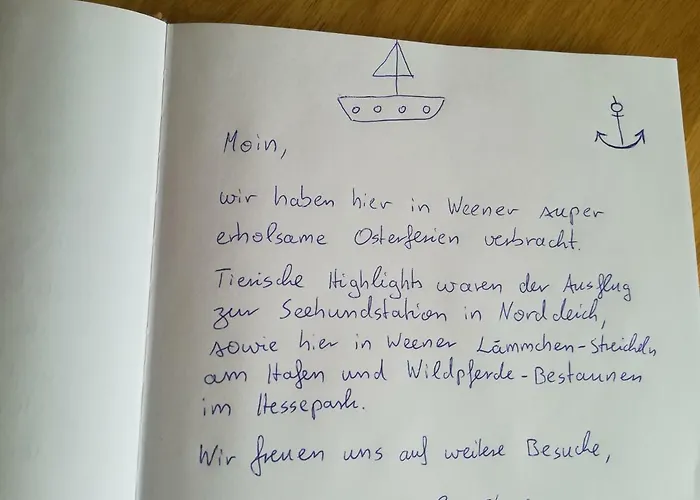 Moin,
wir haben hier in Weener super
erholsame Osterferien verbracht.
Tierische Highlights waren der Ausflug
zur Seehundstation in Norddeich,
sowie hier in Weener Lämmchen-Streicheln
am Hafen und Wildpferde-Bestaunen
im Hessepark.
Wir freuen uns auf weitere Besuche,